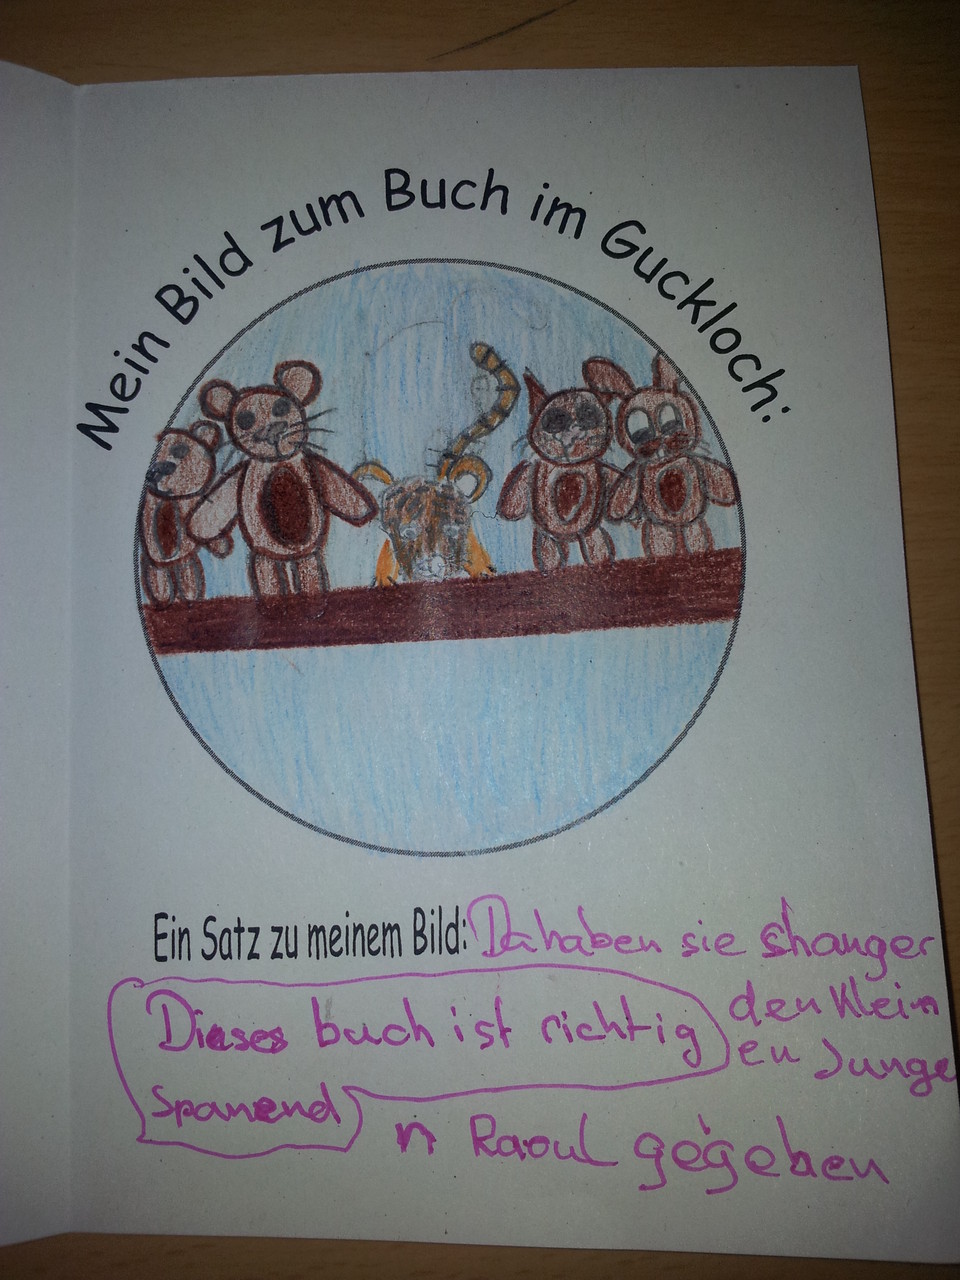 Mein Bild zum Buch im Guckloch:
Ein Satz zu meinem Bild: Da haben sie shanger
den Klein
en Junge
n Raoul gegeben
Dieses buch ist richtig
Spanend